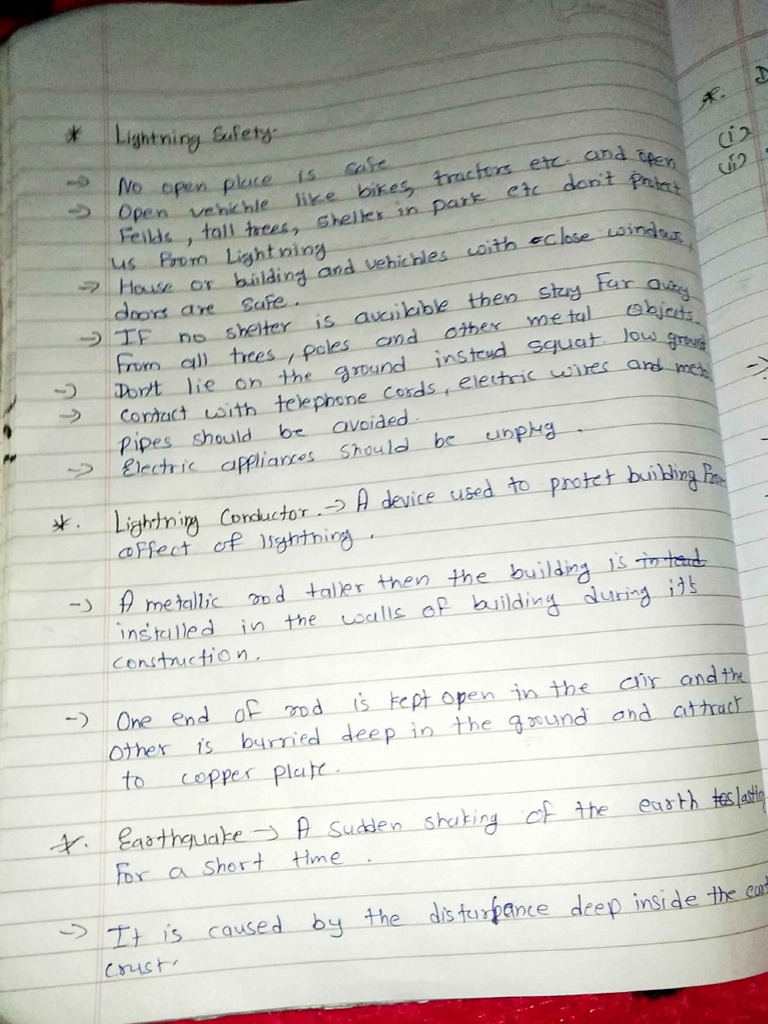 * Lightning Safety-
→ No open place is safe
→ Open vehichle like bikes, tractors etc. and open
Feilds, tall trees, shelter in park etc don't protect
us from Lightning
→ House or building and vehichles with close windows,
doors are safe.
→ IF no shelter is avaiikible then stay Far away
From all trees, poles and other metal objects.
→ Don't lie on the ground instead squat low ground
→ contact with telephone cords, electric wires and metal
pipes should be avoided.
→ Electric appliances should be unplug.
*. Lightning Conductor. → A device used to protet building From
affect of lightning.
→ A metallic rod taller then the building is
installed in the walls of building during its
construction.
→ One end of rod is kept open in the air and the
other is burried deep in the ground and attract
to copper plate.
*. Earthquake → A sudden shaking of the earth lasting
For a short time.
→ It is caused by the disturbance deep inside the
crust.
*. D
(i)
(ii)